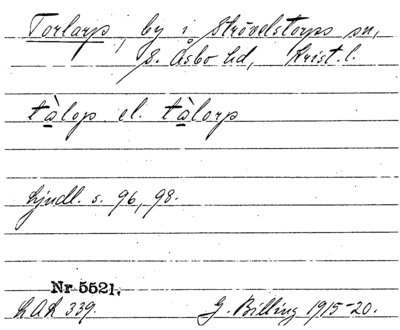 Torlarp, by i Strövelstorps sn,
S. Åsbo hd, Krist. l.
tàlop el. tàlorp
Ljudl. s. 96, 98.
Nr 5521.
LAL 339. G. Billing 1915-20.